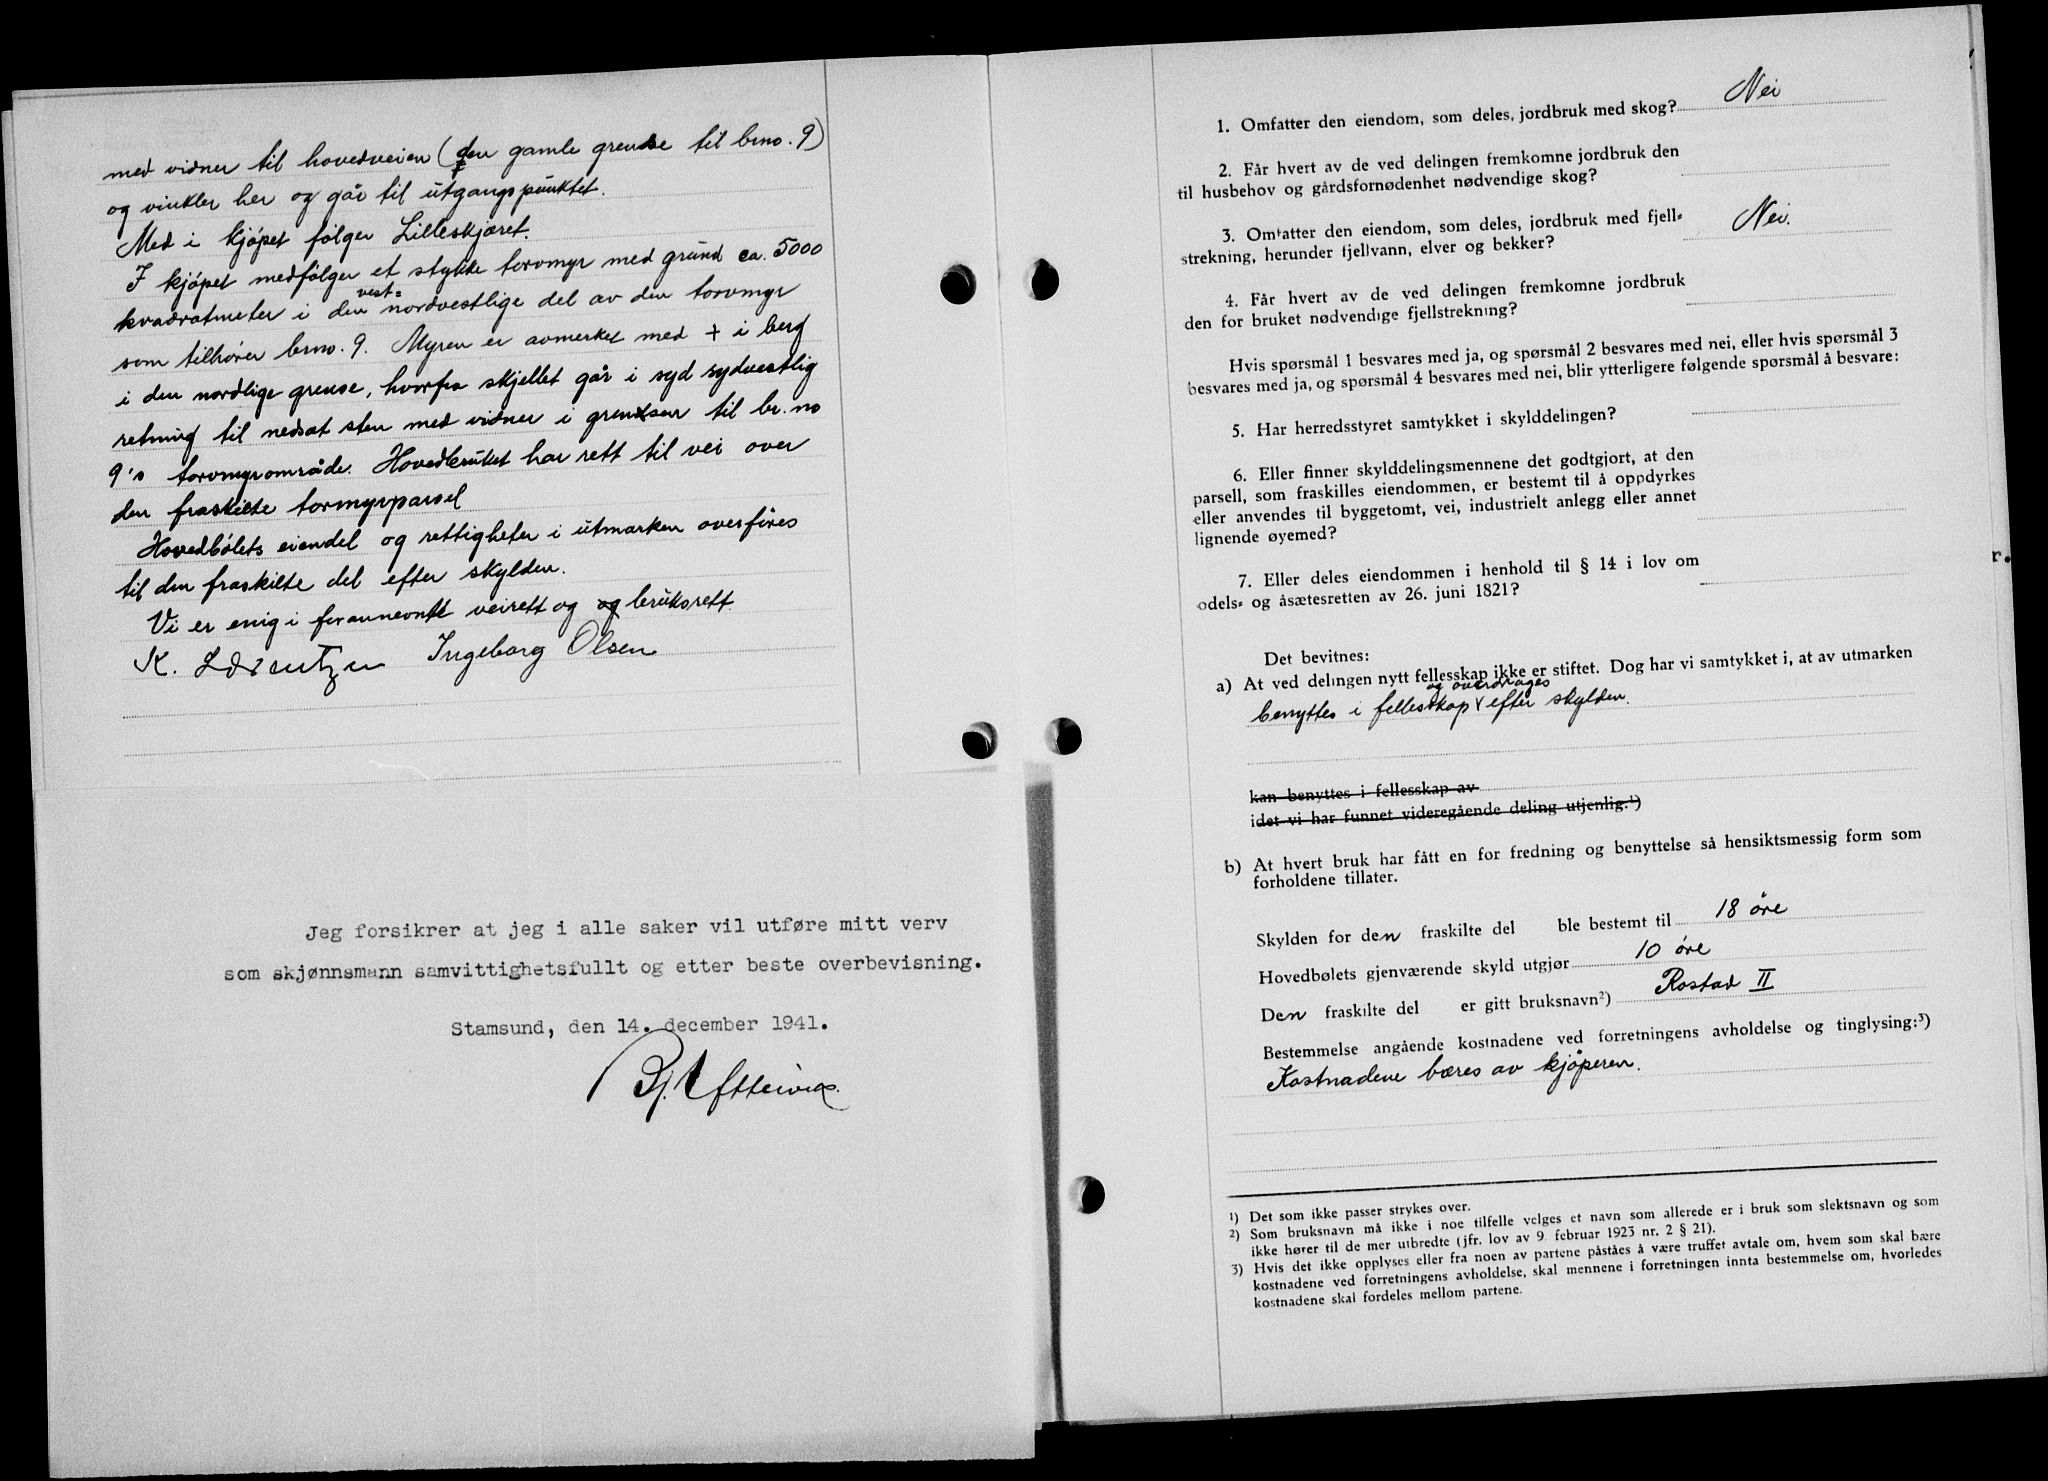 med vidner til hovedveien (den gamle grense til brno. 9)
og vinkler her og går til utgangspunktet.
Med i kjøpet følger Lilleskjæret.
I kjøpet medfølger et stykke torvmyr med grund ca. 5000
kvadratmeter i den vest= nordvestlige del av den torvmyr
som tilhører brno. 9. Myren er avmerket med + i berg
i den nordlige grense, hvorfra skjellet går i syd sydvestlig
retning til nedsat sten med vidner i grensen til br. no
9's torvmyrområde. Hovedbruket har rett til vei over
den fraskilte tormyrparsel
Hovedbølets eiendel og rettigheter i utmarken overføres
til den fraskilte del efter skylden.
Vi er enig i forannevnte veirett og og bruksrett.
K. Lorentzen Ingeborg Olsen
Jeg forsikrer at jeg i alle saker vil utføre mitt verv
som skjønnsmann samvittighetsfullt og etter beste overbevisning.
Stamsund, den 14. december 1941.
1. Omfatter den eiendom, som deles, jordbruk med skog? Nei
2. Får hvert av de ved delingen fremkomne jordbruk den
til husbehov og gårdsfornødenhet nødvendige skog?
3. Omfatter den eiendom, som deles, jordbruk med fjell=
strekning, herunder fjellvann, elver og bekker? Nei.
4. Får hvert av de ved delingen fremkomne jordbruk
den for bruket nødvendige fjellstrekning?
Hvis spørsmål 1 besvares med ja, og spørsmål 2 besvares med nei, eller hvis spørsmål 3
besvares med ja, og spørsmål 4 besvares med nei, blir ytterligere følgende spørsmål å besvare:
5. Har herredsstyret samtykket i skylddelingen?
6. Eller finner skylddelingsmennene det godtgjort, at den
parsell, som fraskilles eiendommen, er bestemt til å oppdyrkes
eller anvendes til byggetomt, vei, industrielt anlegg eller annet
lignende øyemed?
7. Eller deles eiendommen i henhold til § 14 i lov om
odels= og åsætesretten av 26. juni 1821?
r.
Det bevitnes:
a) At ved delingen nytt fellesskap ikke er stiftet. Dog har vi samtykket i, at av utmarken
og overdrages
benyttes i fellesskap efter skylden.
kan benyttes i fellesskap av
idet vi har funnet videregående deling utjenlig.¹)
b) At hvert bruk har fått en for fredning og benyttelse så hensiktsmessig form som
forholdene tillater.
Skylden for den fraskilte del ble bestemt til 18 øre
Hovedbølets gjenværende skyld utgjør 10 øre
Den fraskilte del er gitt bruksnavn²) Rostad II
Bestemmelse angående kostnadene ved forretningens avholdelse og tinglysing:³)
Kostnadene bæres av kjøperen.
1) Det som ikke passer strykes over.
2) Som bruksnavn må ikke i noe tilfelle velges et navn som allerede er i bruk som slektsnavn og som
ikke hører til de mer utbredte (jfr. lov av 9. februar 1923 nr. 2 § 21).
3) Hvis det ikke opplyses eller fra noen av partene påståes å være truffet avtale om, hvem som skal bære
kostnadene ved forretningens avholdelse, skal mennene i forretningen innta bestemmelse om, hvorledes
kostnadene skal fordeles mellom partene.